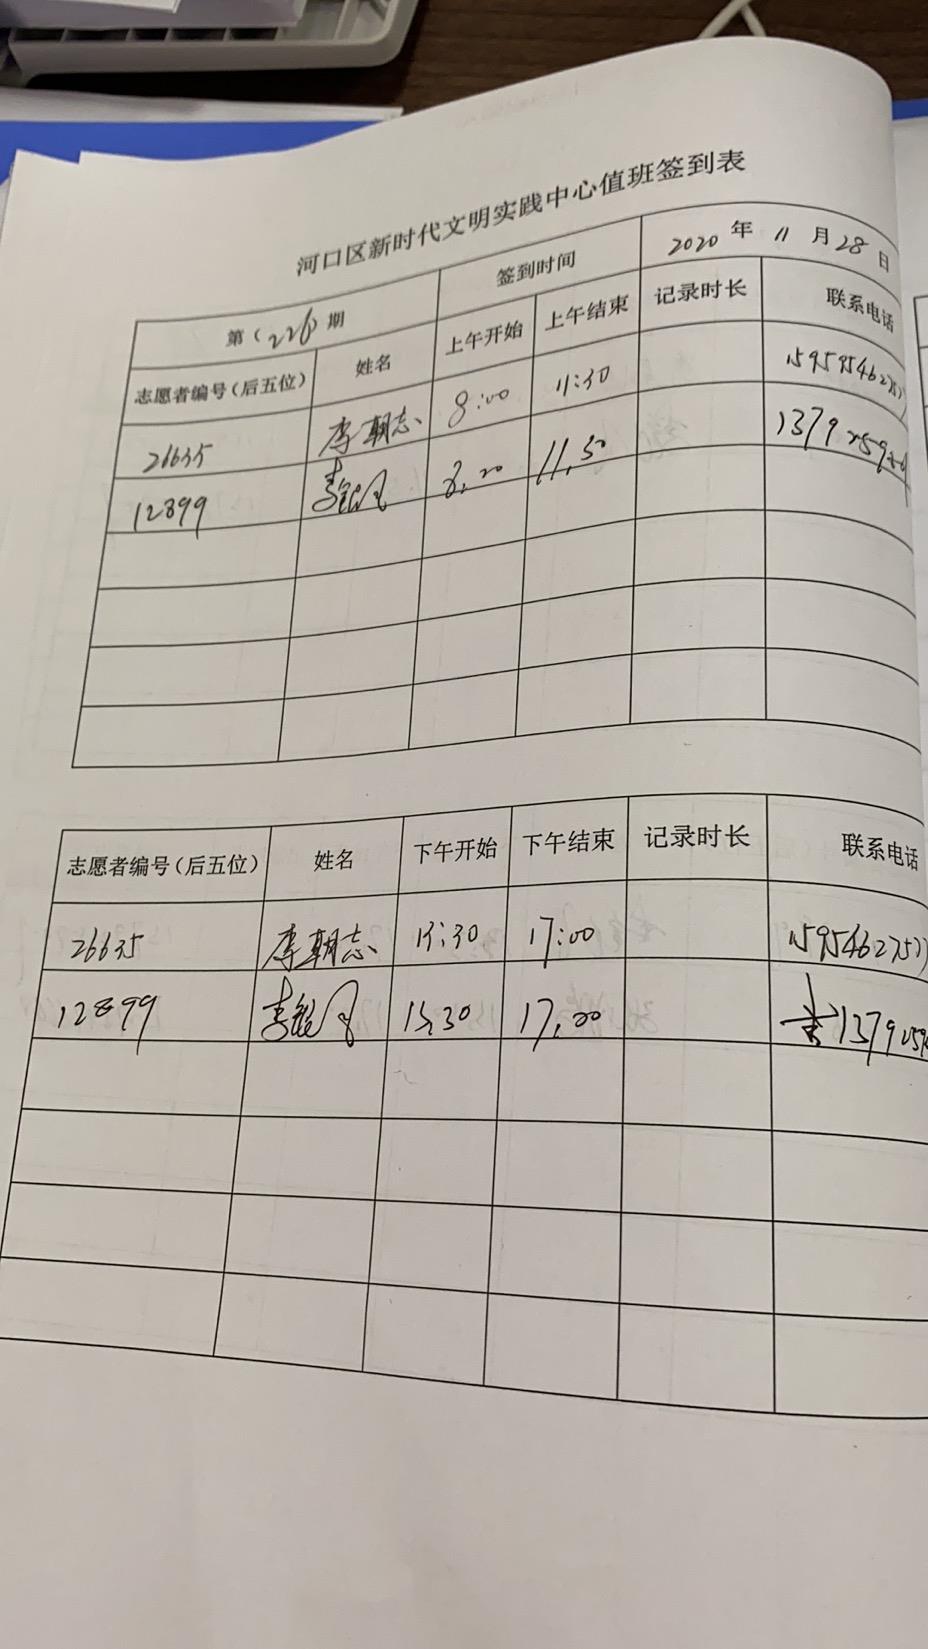 河口区新时代文明实践中心值班签到表
第(226)期 签到时间 2020 年 11 月 28 日
志愿者编号(后五位) 姓名 上午开始 上午结束 记录时长 联系电话
26635 李朝志 8:00 11:30
12899 8.00 11.30
志愿者编号(后五位) 姓名 下午开始 下午结束 记录时长 联系电话
26635 李朝志 13:30 17:00 15954627577
12899 13.30 17.00